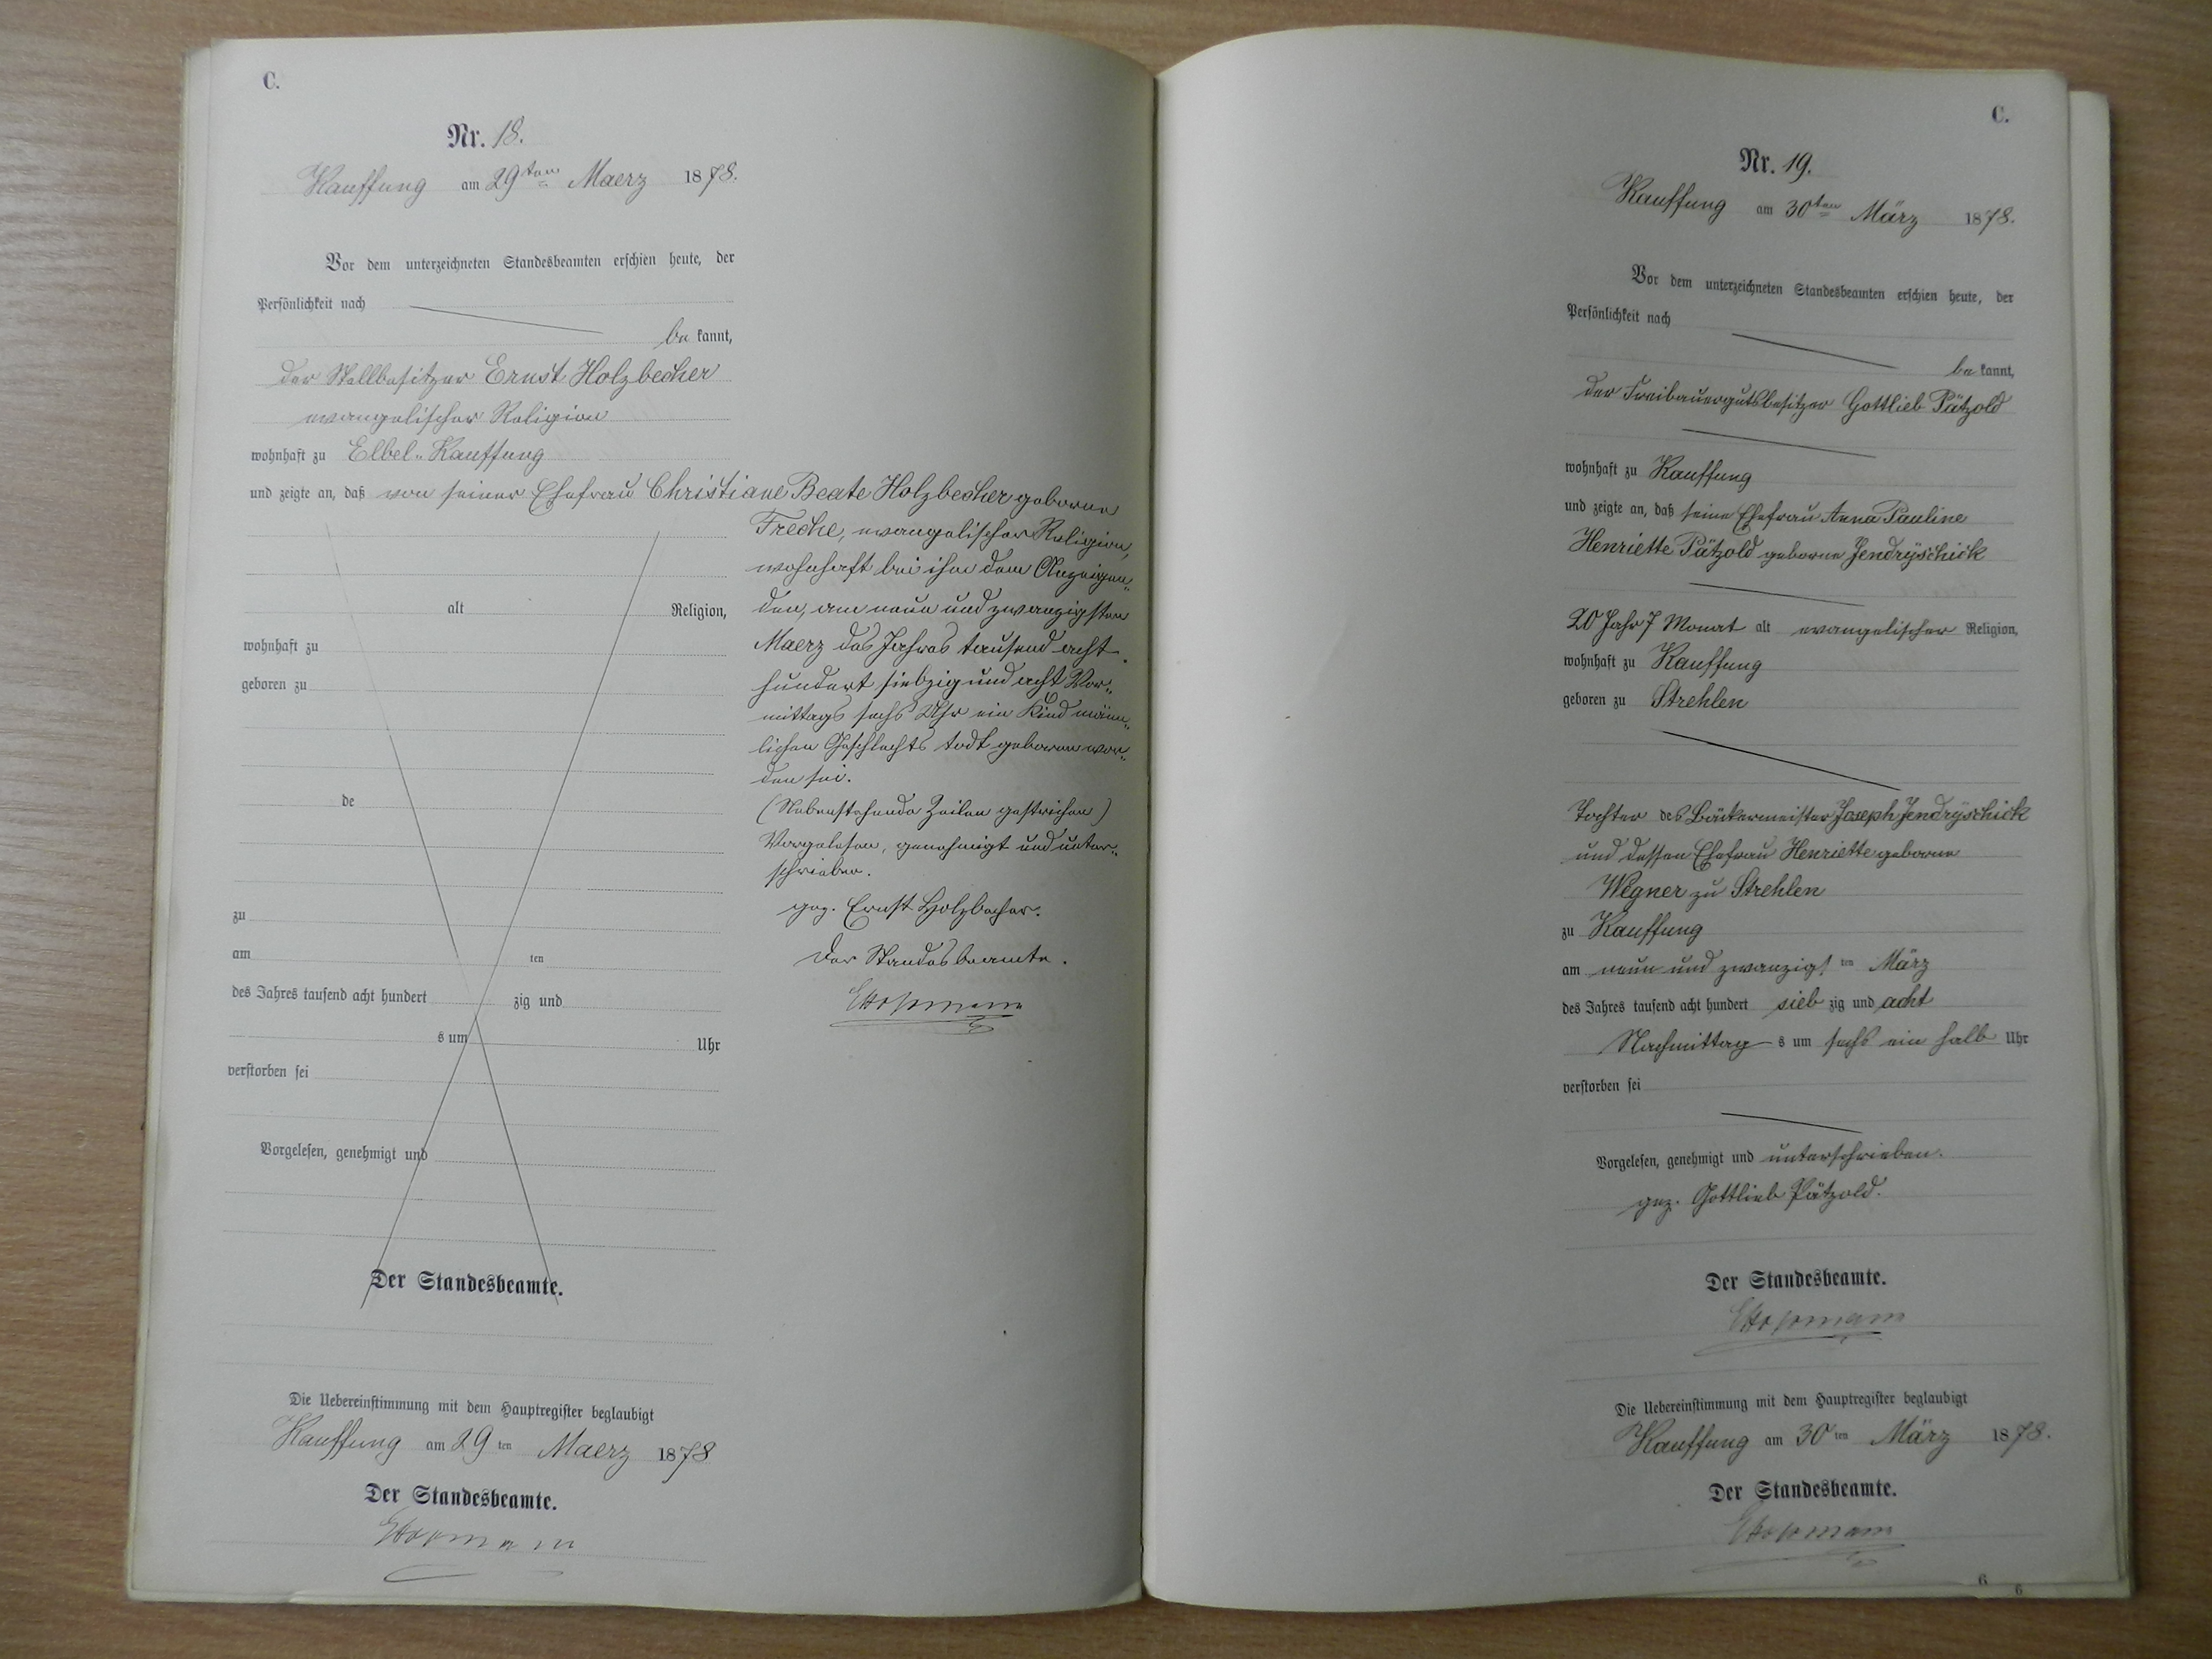 C.
Nr. 18.
Kauffung am 29ten Maerz 1878.
Vor dem unterzeichneten Standesbeamten erschien heute, der
Persönlichkeit nach
be kannt,
der Stellbesitzer Ernst Holzbecher
evangelischer Religion
wohnhaft zu Elbel-Kauffung
und zeigte an, daß von seiner Ehefrau Christiane Beate Holzbecher geborne
Freche, evangelischer Religion,
wohnhaft bei ihm dem Anzeigen-
den, am neun und zwanzigsten
Maerz des Jahres tausend acht
hundert siebzig und acht Vor-
mittags sechs Uhr ein Kind männ-
lichen Geschlechts todt geboren wor-
den sei.
(Nebenstehende Zeilen gestrichen)
Vorgelesen, genehmigt und unter-
schrieben.
gez. Ernst Holzbecher.
Der Standesbeamte.
alt Religion,
wohnhaft zu
geboren zu
de
zu
am ten
des Jahres tausend acht hundert zig und
s um Uhr
verstorben sei
Vorgelesen, genehmigt und
Der Standesbeamte.
Die Uebereinstimmung mit dem Hauptregister beglaubigt
Kauffung am 29 ten Maerz 1878
Der Standesbeamte.
C.
Nr. 19.
Kauffung am 30ten März 1878.
Vor dem unterzeichneten Standesbeamten erschien heute, der
Persönlichkeit nach
be kannt,
der Freibauergutsbesitzer Gottlieb Pätzold
wohnhaft zu Kauffung
und zeigte an, daß seine Ehefrau Anna Pauline
Henriette Pätzold geborne Jendryschick
20 Jahr 7 Monat alt evangelischer Religion,
wohnhaft zu Kauffung
geboren zu Strehlen
Tochter des Bäckermeister Joseph Jendryschick
und dessen Ehefrau Henriette geborne
Wegner zu Strehlen
zu Kauffung
am neun und zwanzigs ten März
des Jahres tausend acht hundert sieb zig und acht
Nachmittag s um sechs ein halb Uhr
verstorben sei
Vorgelesen, genehmigt und unterschrieben.
gez. Gottlieb Pätzold.
Der Standesbeamte.
Die Uebereinstimmung mit dem Hauptregister beglaubigt
Kauffung am 30 ten März 1878.
Der Standesbeamte.
6
6